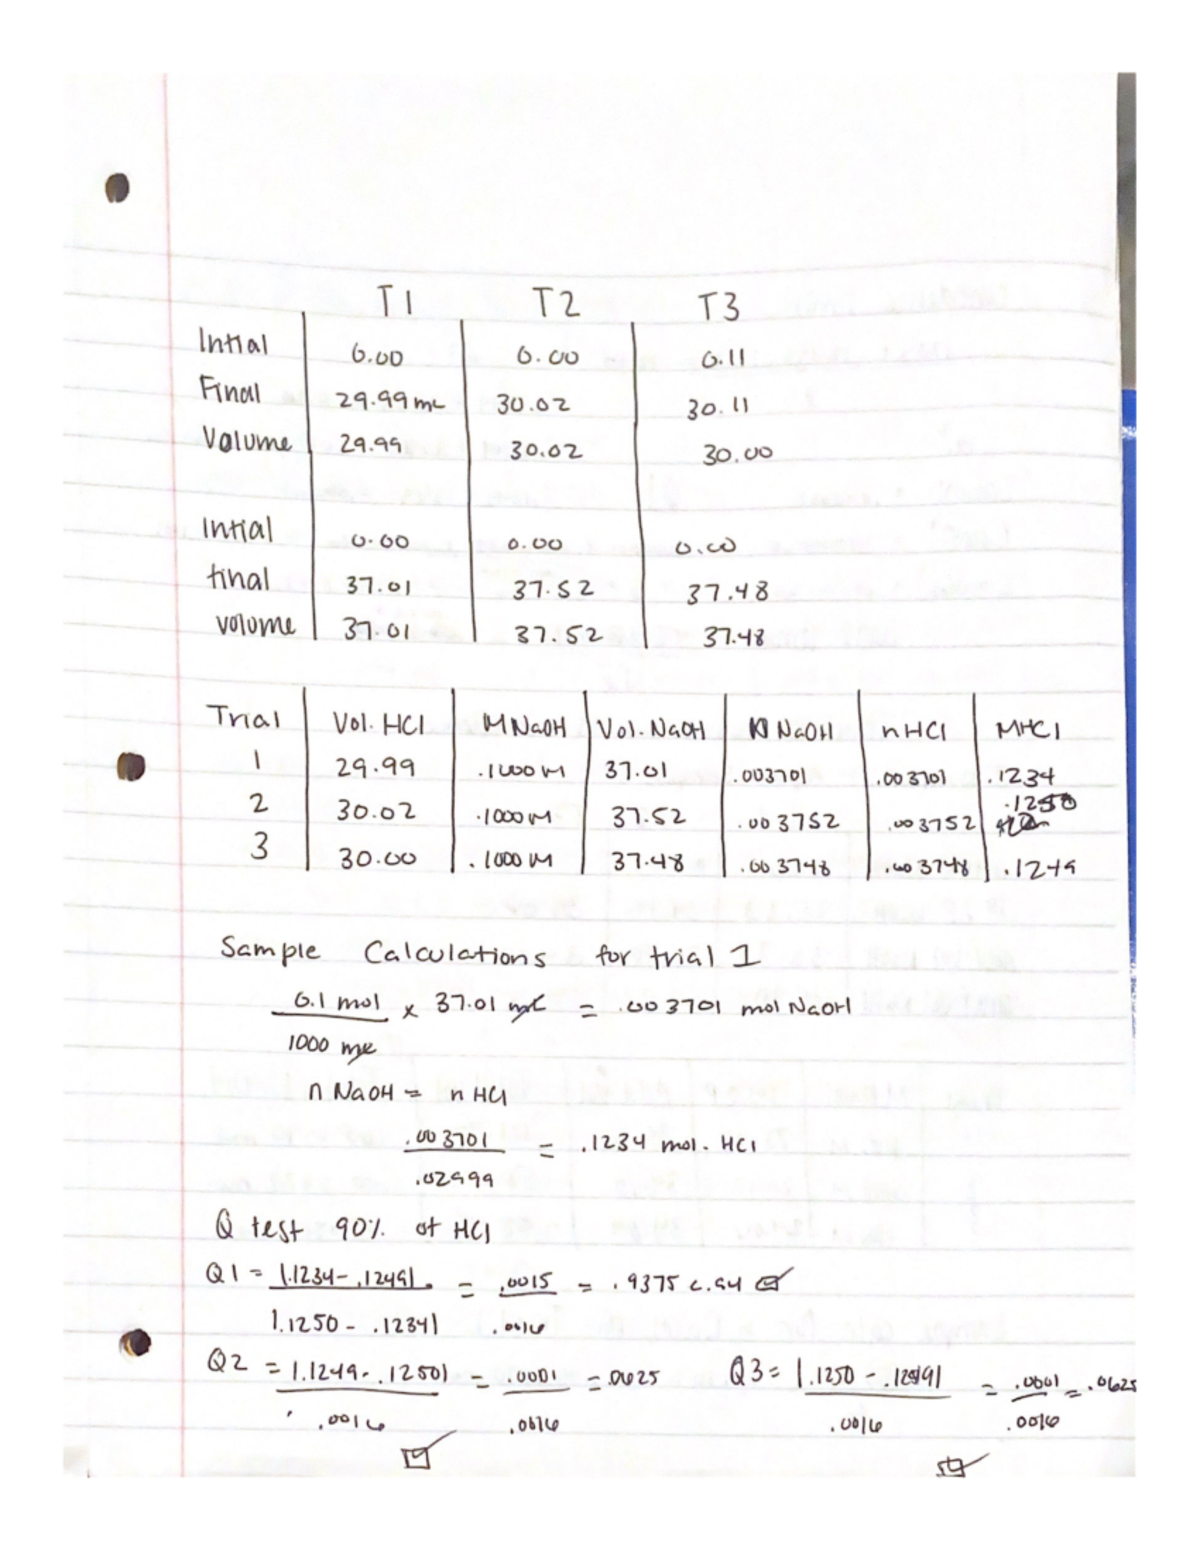 T1 T2 T3
Intial 0.00 0.00 0.11
Final 29.99 mL 30.02 30.11
Volume 29.99 30.02 30.00
Intial 0.00 0.00 0.00
final 37.01 37.52 37.48
volume 37.01 37.52 37.48
Trial Vol. HCl M NaOH Vol. NaOH n NaOH n HCl MHCl
1 29.99 .1000 M 37.01 .003701 .003701 .1234
2 30.02 .1000 M 37.52 .003752 .003752 .1250
3 30.00 .1000 M 37.48 .003748 .003748 .1249
Sample Calculations for trial 1
0.1 mol × 37.01 mL = .003701 mol NaOH
1000 mL
n NaOH = n HCl
.003701 = .1234 mol. HCl
.02999
Q test 90% of HCl
Q1 = |.1234 - .1249| = .0015 = .9375 <.94 ☑
|.1250 - .1234| .0016
Q2 = |.1249 - .1250| = .0001 = .0625 Q3 = |.1250 - .1249| = .0001 = .0625
.0016 .0016 .0016 .0016
☑ ☑